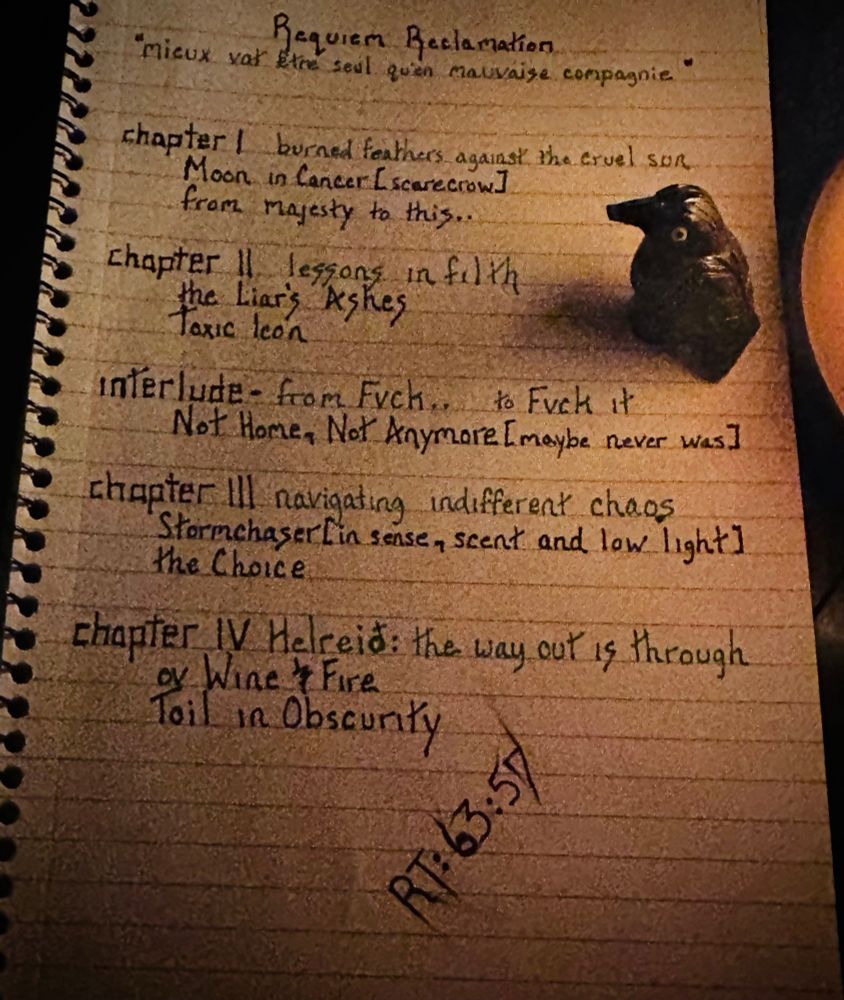 Requiem Reclamation
"mieux vat être seul qu'en mauvaise compagnie"
chapter I burned feathers against the cruel sun
Moon in Cancer [scarecrow]
from majesty to this..
chapter II lessons in filth
the Liar's Ashes
Toxic Icon
interlude - from Fvck.. to Fvck it
Not Home, Not Anymore [maybe never was]
chapter III navigating indifferent chaos
Stormchaser [in sense, scent and low light]
the Choice
chapter IV Helreið: the way out is through
ov Wine & Fire
Toil in Obscurity
RT: 63:57